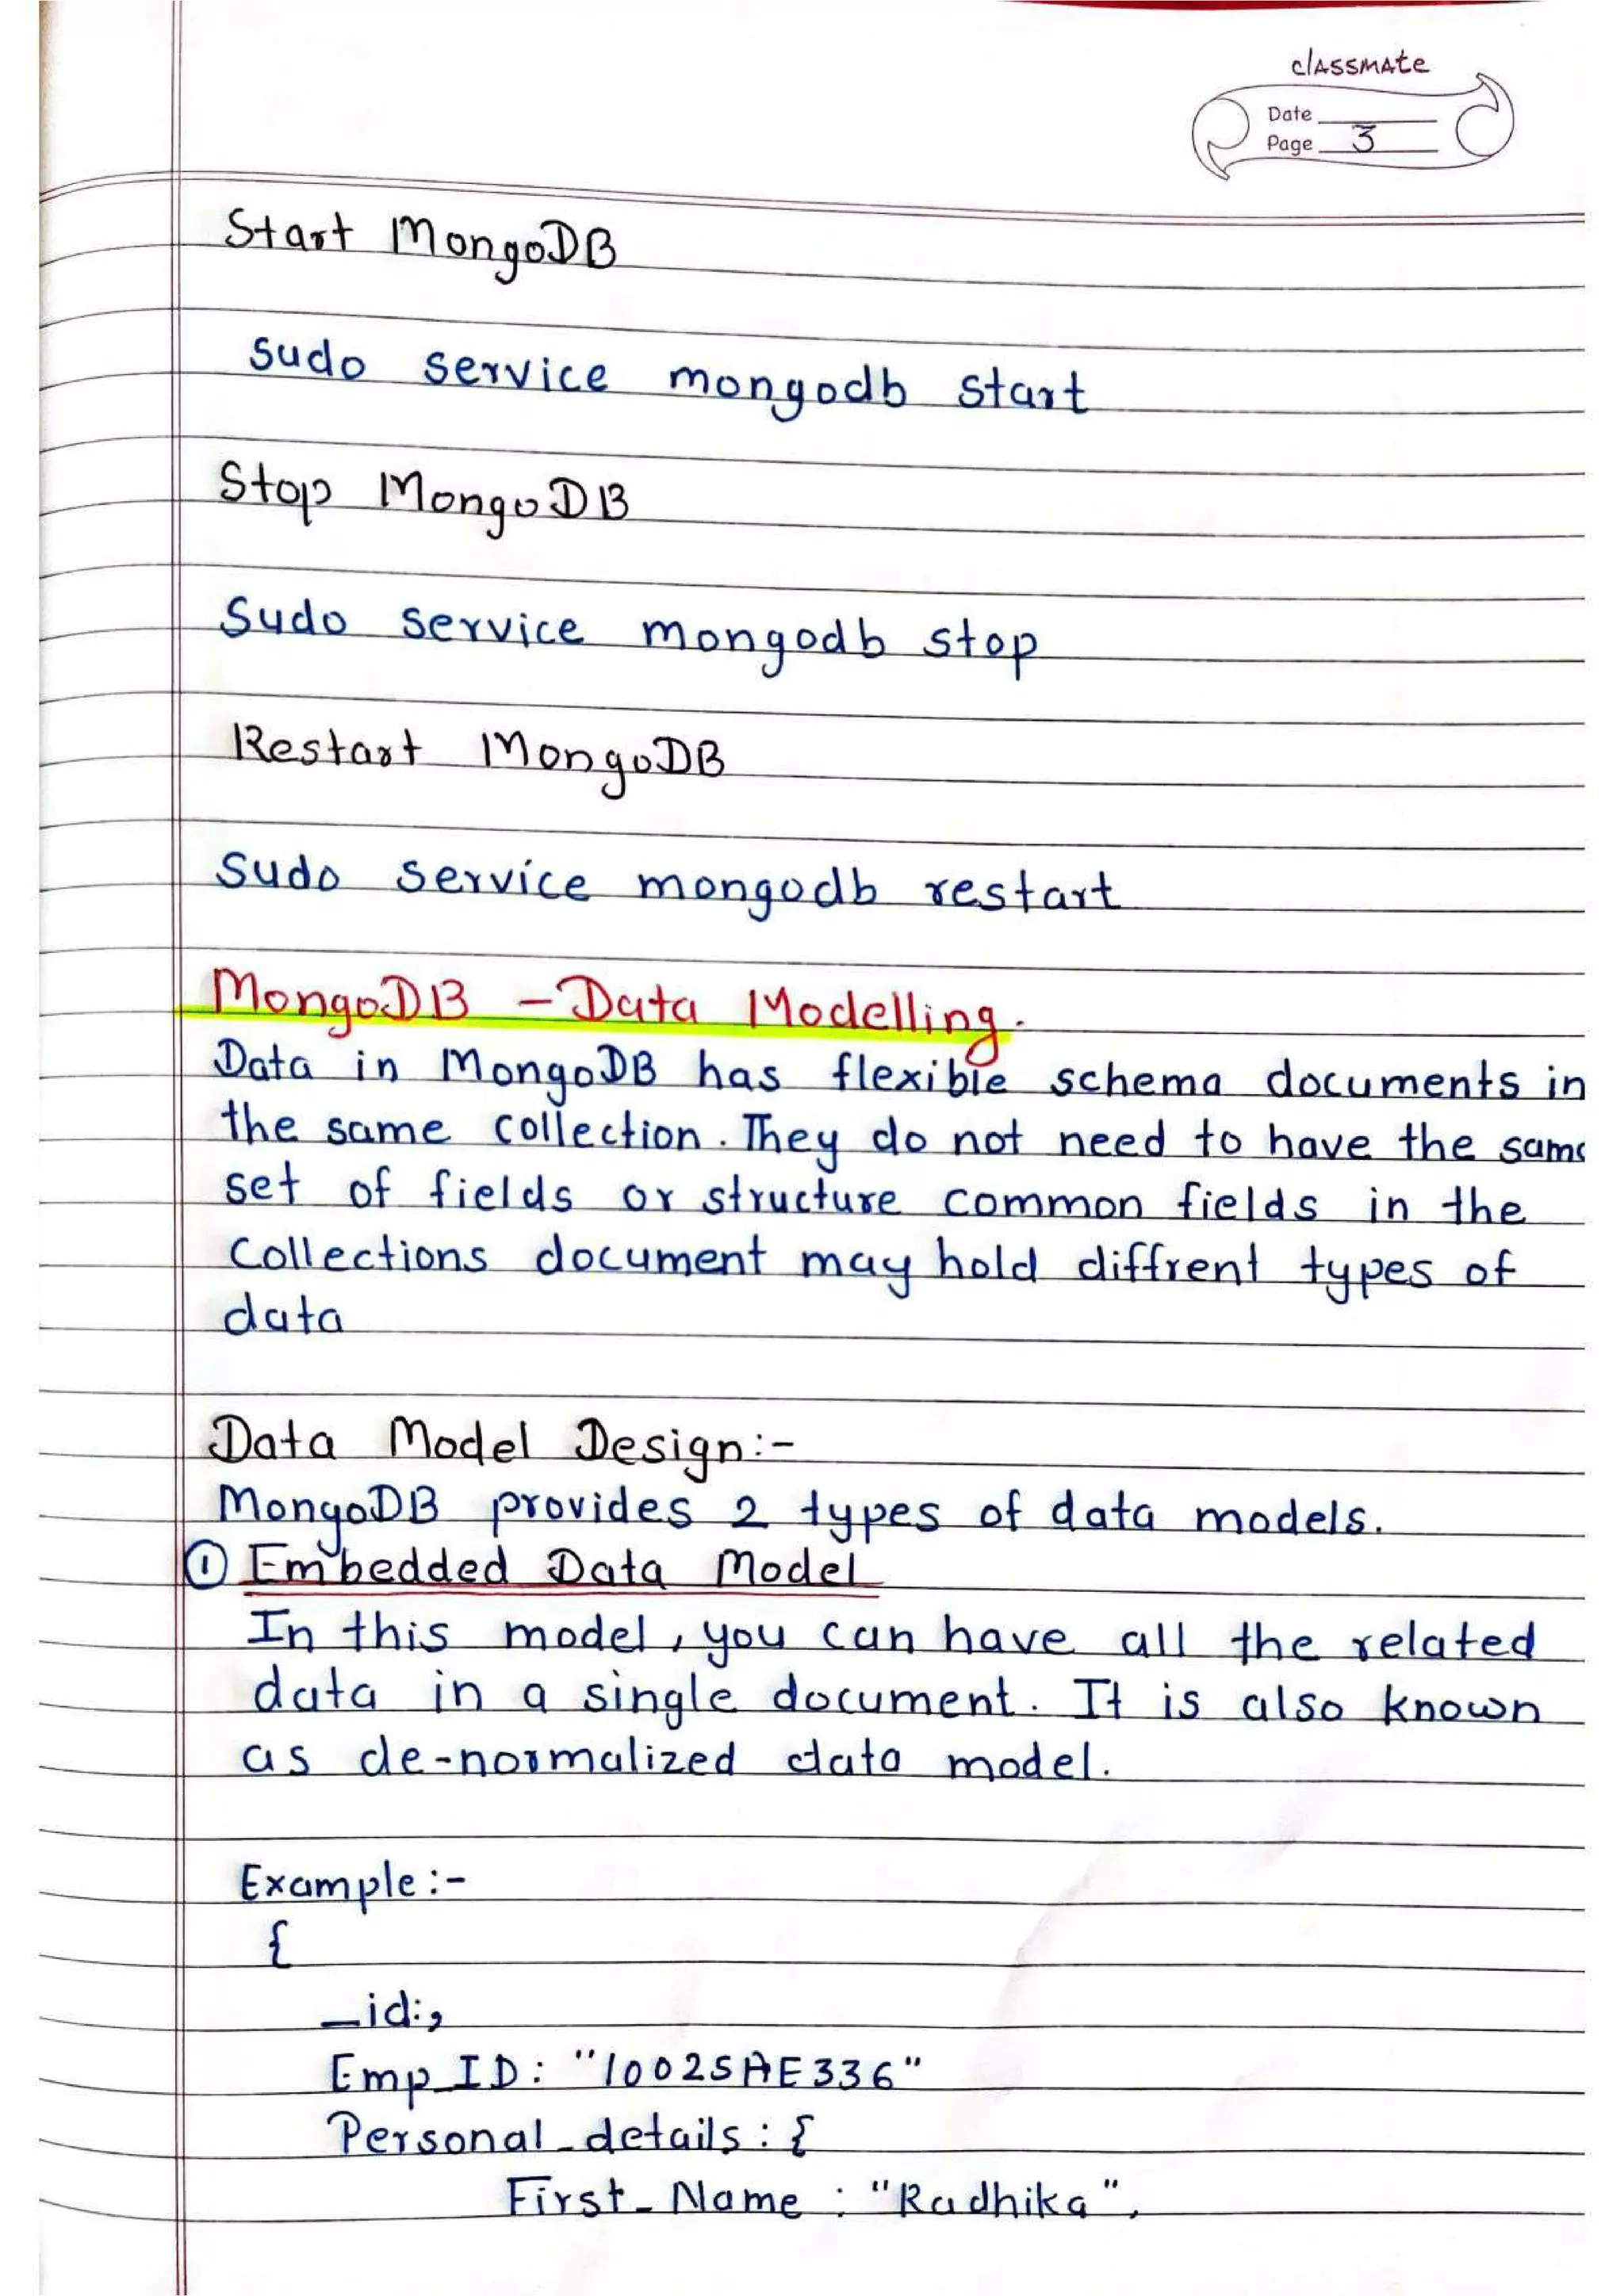 classmate
Date
Page 3
Start MongoDB
sudo service mongodb start
Stop MongoDB
Sudo service mongodb stop
Restart MongoDB
Sudo service mongodb restart
MongoDB - Data Modelling.
Data in MongoDB has flexible schema documents in
the same collection. They do not need to have the same
set of fields or structure common fields in the
Collections document may hold diffrent types of
data
Data Model Design:-
MongoDB provides 2 types of data models.
① Embedded Data Model
In this model, you can have all the related
data in a single document. It is also known
as de-normalized data model.
Example:-
{
_id:,
Emp_ID: "10025AE336"
Personal_details: {
First_Name : "Radhika",